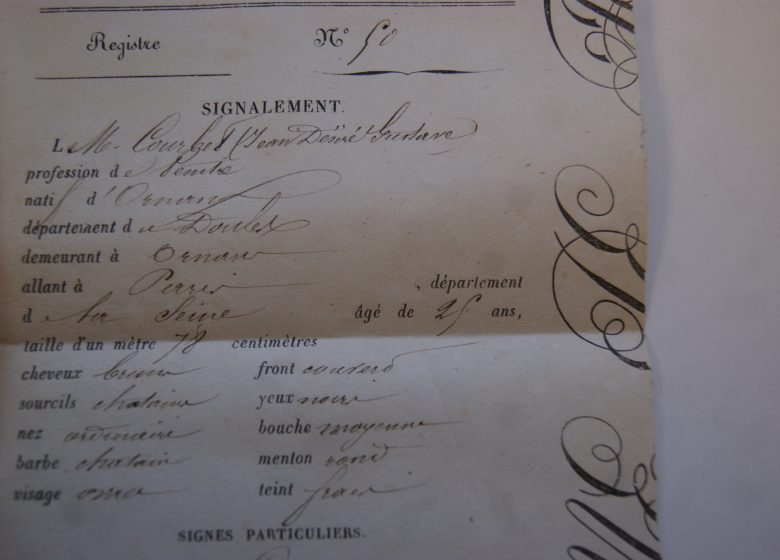 Registre N° 50
SIGNALEMENT.
L M. Courbet (Jean Désiré Gustave)
profession de Peintre
natif d'Ornans
département du Doubs
demeurant à Ornans
allant à Parris , département
d la Seine âgé de 25 ans,
taille d'un mètre 78 centimètres
cheveux bruns front couvert
sourcils chatains yeux noirs
nez ordinaire bouche moyenne
barbe chatain menton rond
visage teint frais
SIGNES PARTICULIERS.